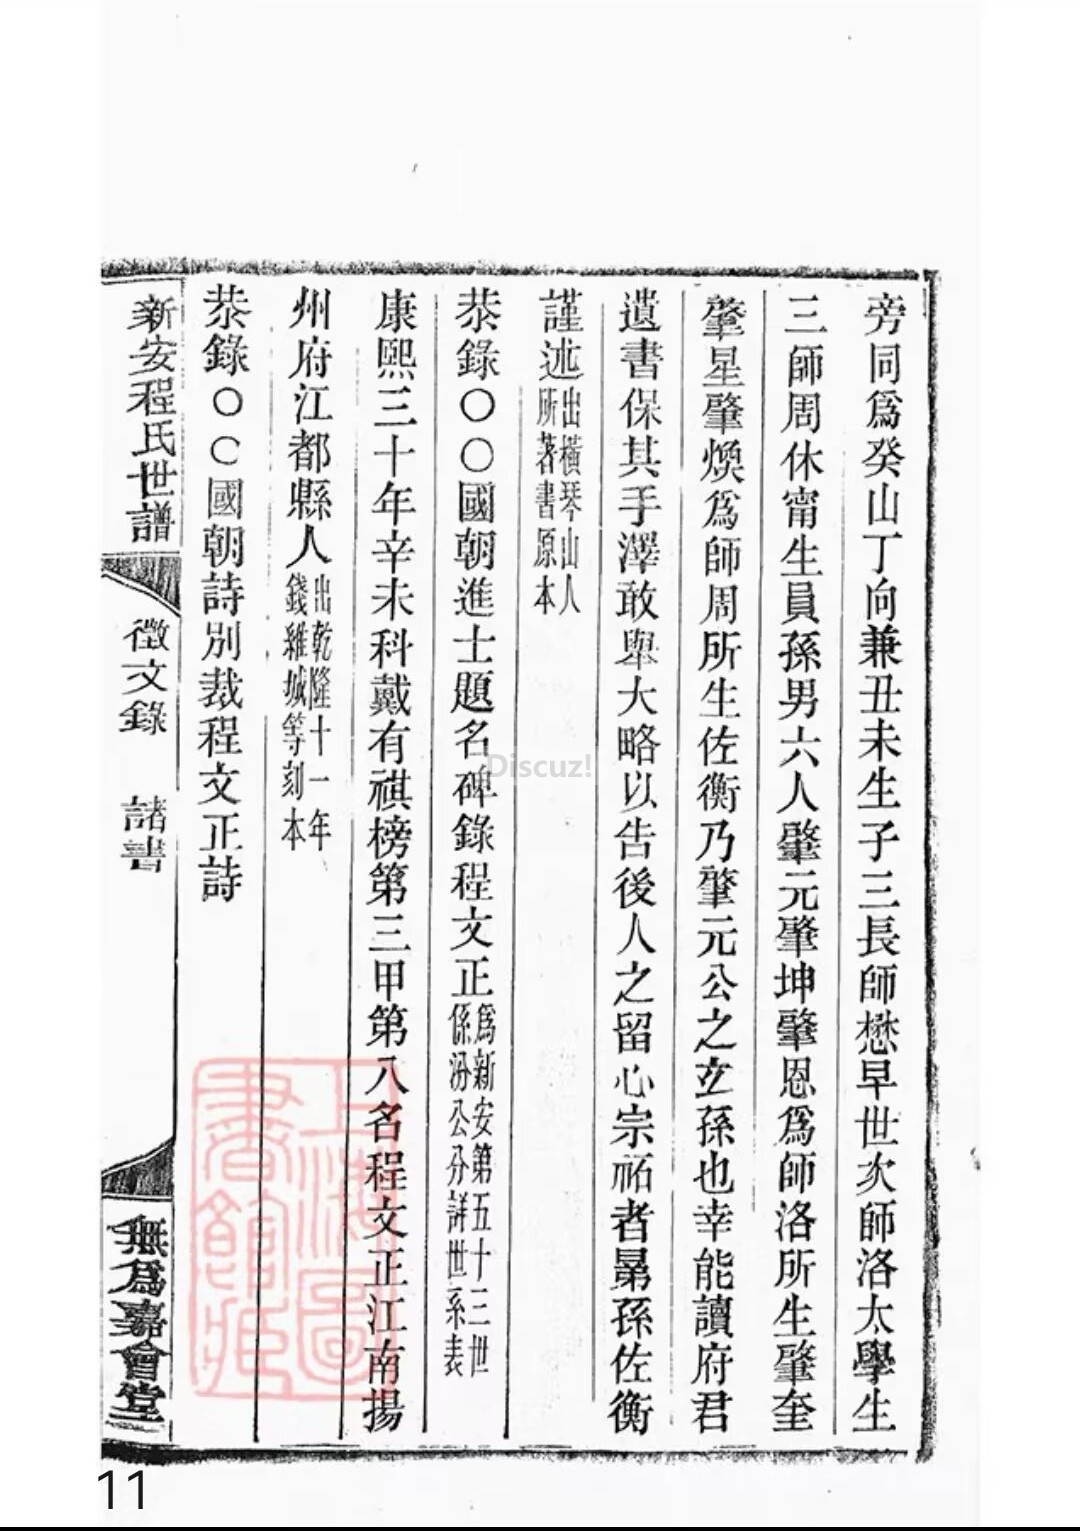 旁同爲癸山丁向兼丑未生子三長師懋早世次師洛太學生
三師周休甯生員孫男六人肇元肇坤肇恩爲師洛所生肇奎
肇星肇煥爲師周所生佐衡乃肇元公之玄孫也幸能讀府君
遺書保其手澤敢舉大略以告後人之留心宗祏者曷孫佐衡
謹述出橫琴山人
所著書原本
恭錄〇〇國朝進士題名碑錄程文正爲新安第五十三世
係汾公分詳世系表
康熙三十年辛未科戴有祺榜第三甲第八名程文正江南揚
州府江都縣人出乾隆十一年
錢維城等刻本
恭錄〇〇國朝詩別裁程文正詩
新安程氏世譜 徵文錄 諸書 無爲嘉會堂
上海圖書館藏
Discuz!
11